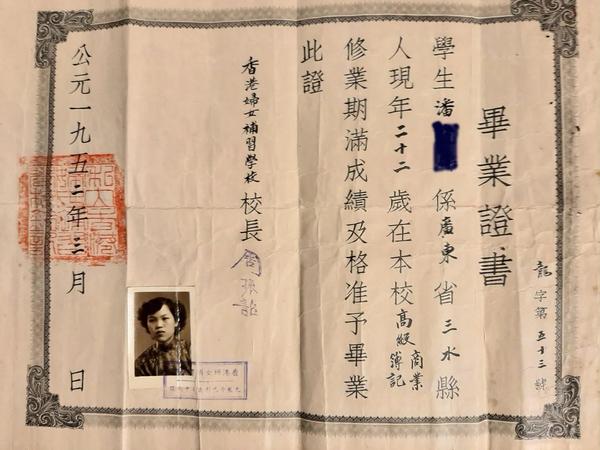 龍字第五十三號
畢業證書
學生潘 係廣東省三水縣
人現年二十二歲在本校高級商業簿記
修業期滿成績及格准予畢業
此證
香港婦女補習學校 校長
公元一九五二年三月 日